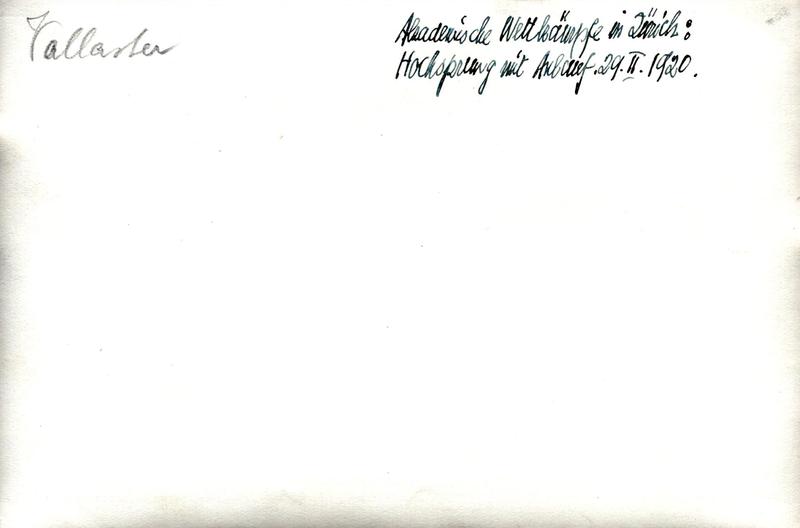 Vallaster
Akademische Wettkämpfe in Zürich:
Hochsprung mit Anlauf. 29. II. 1920.